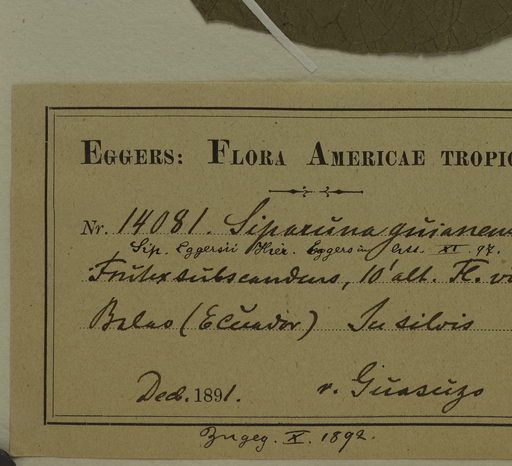 EGGERS: FLORA AMERICAE TROPIC
Nr. 14081. Siparuna guianens
Sip. Eggersii Hier. Eggers in litt. XI. 97.
Frutex subscandens, 10' alt. Fl. vi
Balao (Ecuador) In silvis
Decb. 1891. v. Guasuzo
Zugeg. X. 1892.